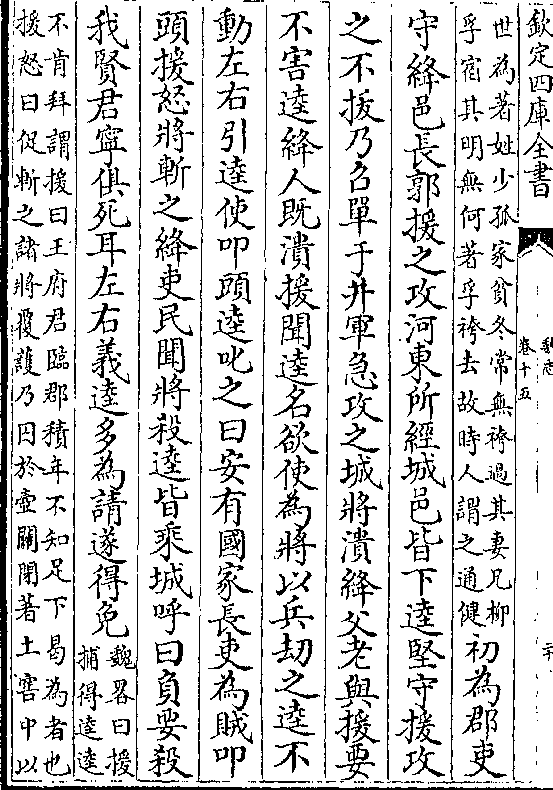 欽定四庫全書
卷十五
世為著姓少孤家貧冬常無袴過其妻兄柳
孚宿其明無何著孚袴去故時人謂之通健
初為郡吏
守絳邑長郭援之攻河東所經城邑皆下逵堅守援攻
之不拔乃召單于并軍急攻之城將潰絳父老與援要
不害逵絳人既潰援聞逵名欲使為將以兵劫之逵不
動左右引逵使叩頭逵叱之曰安有國家長吏為賊叩
頭援怒將斬之絳吏民聞將殺逵皆乘城呼曰負要殺
我賢君寧俱死耳左右義逵多為請遂得免
魏畧曰援
捕得逵逵
不肯拜謂援曰王府君臨郡積年不知足下曷為者也
援怒曰促斬之諸將覆護乃囚於壺關閉著土窖中以